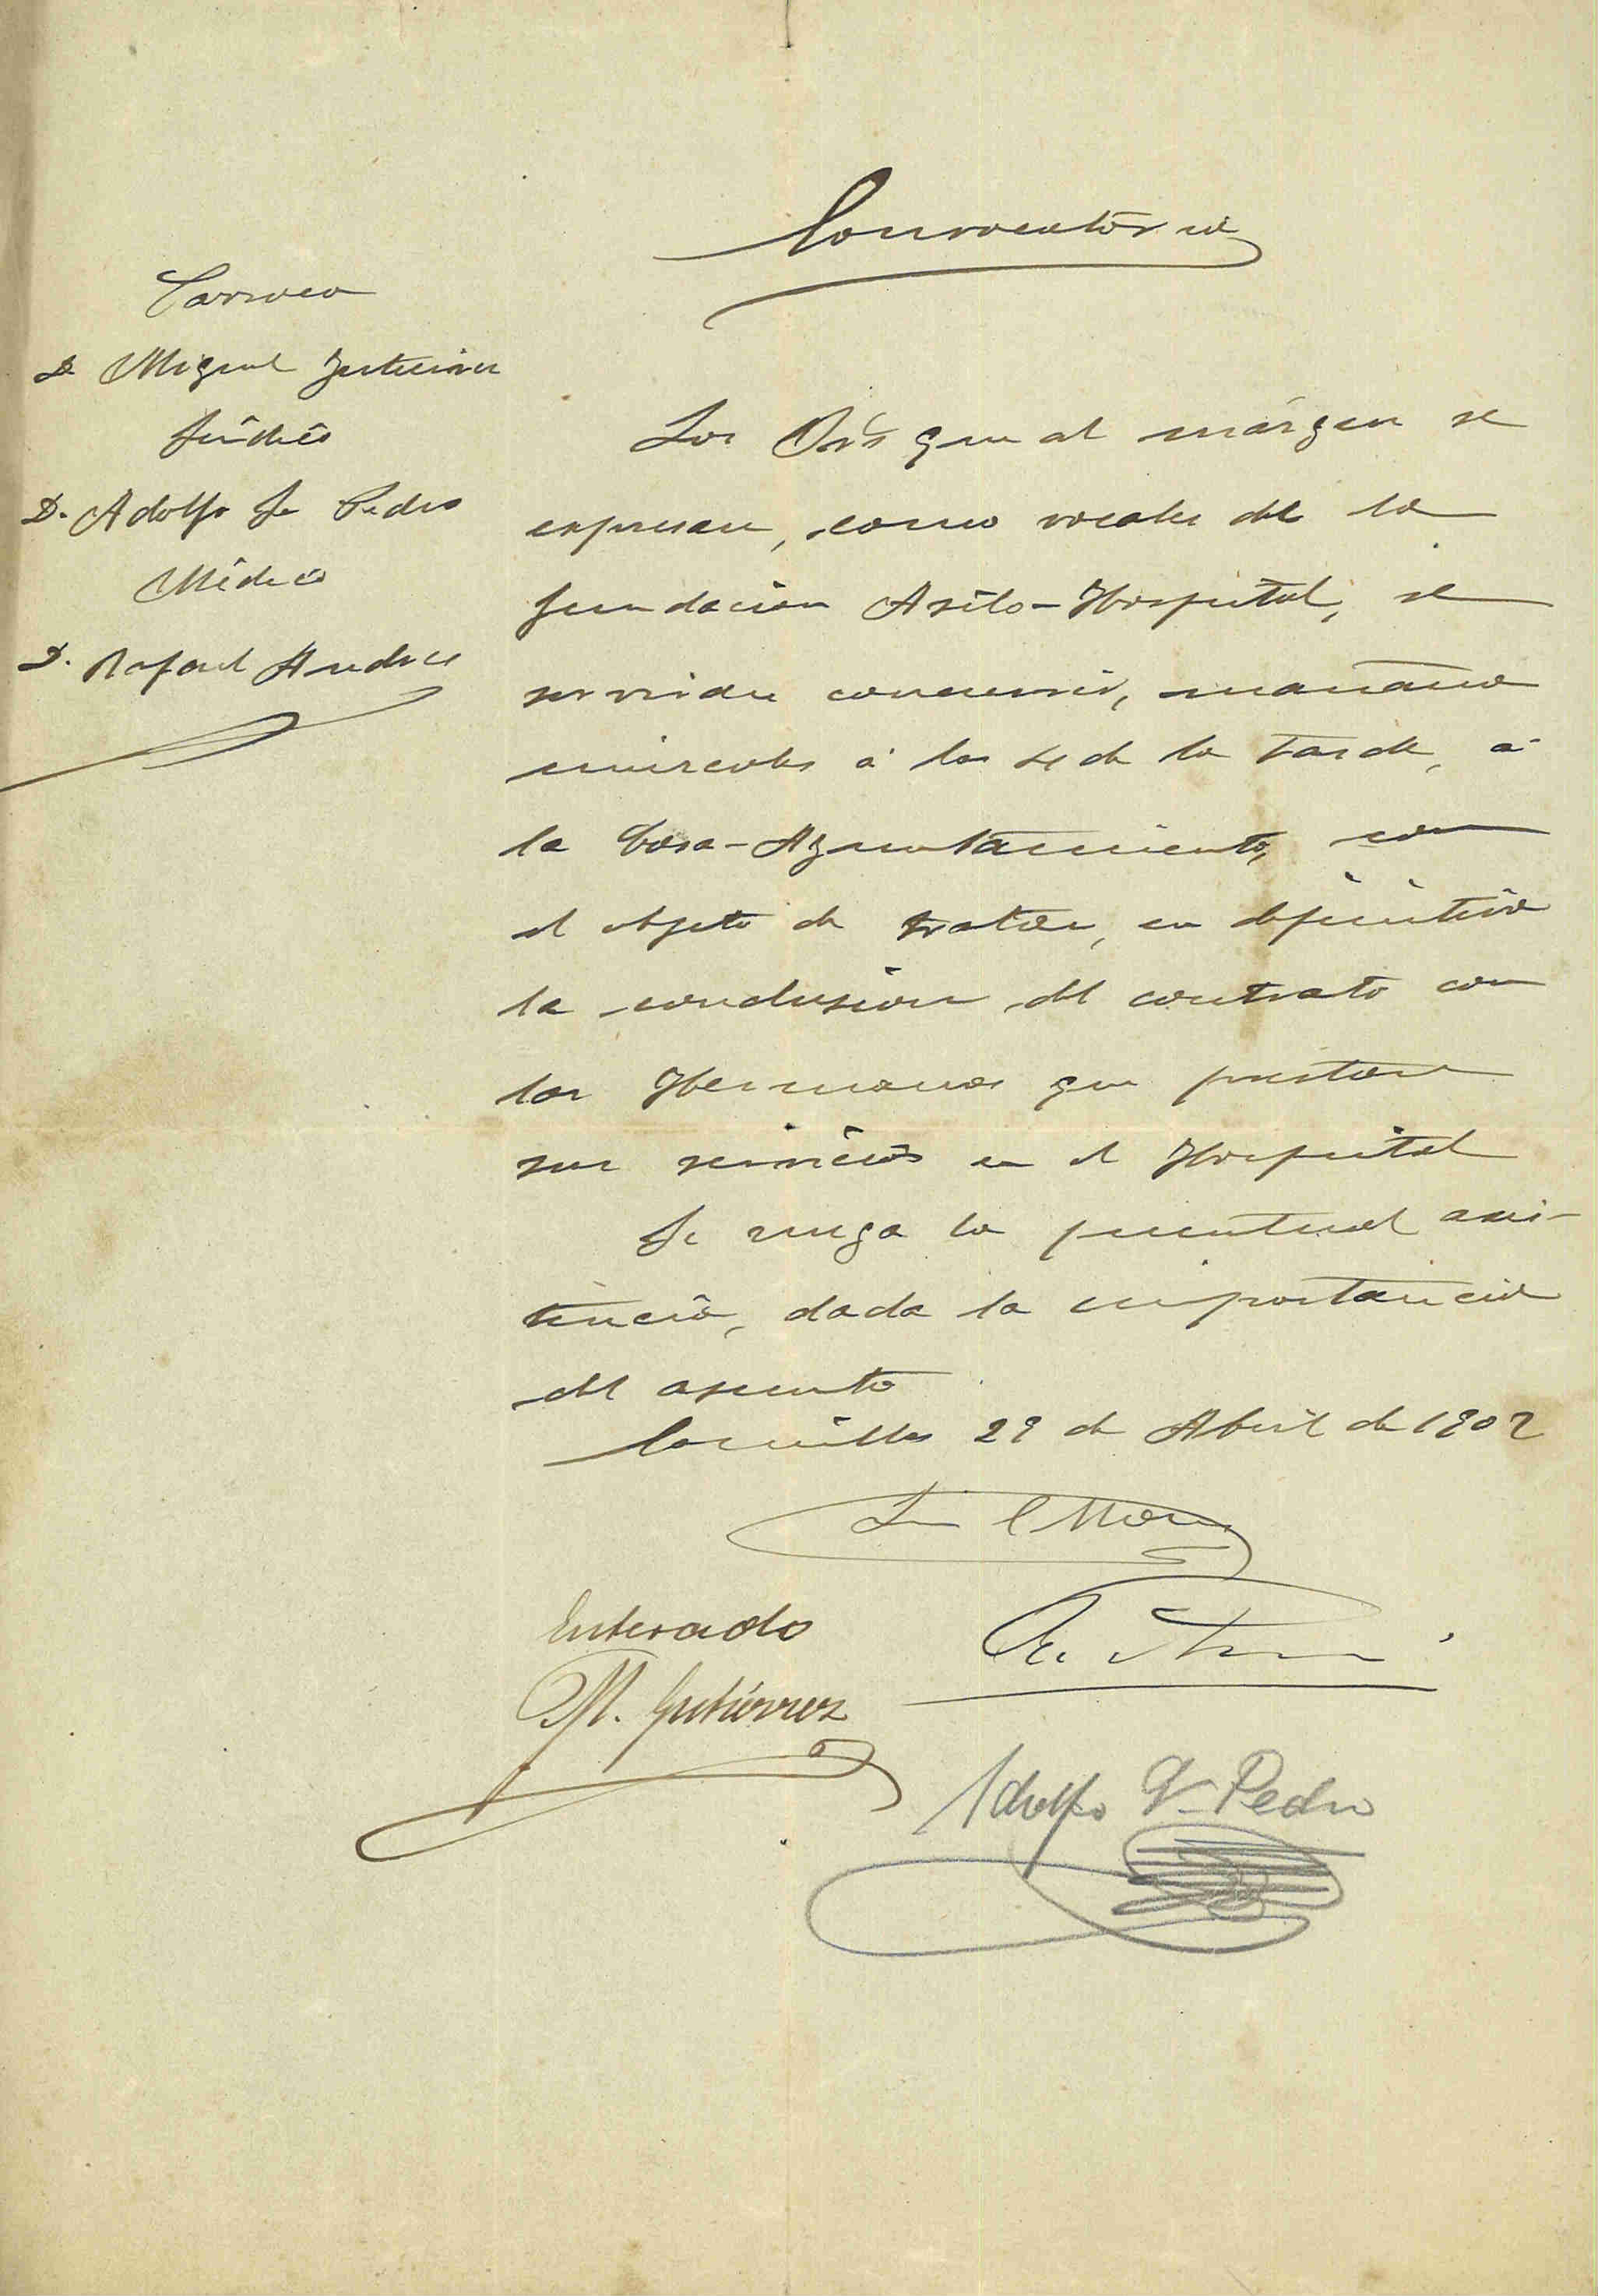 Convocatoria
Párroco
D. Miguel Gutierrez
Síndico
D. Adolfo S. Pedro
Médico
D. Rafael Andres
Los Srs que al márgen se
expresan, como vocales de la
fundación Asilo-Hospital, se
servirán concurrir, mañana
miercoles á las 4 de la tarde, á
la Casa-Ayuntamiento, con
el objeto de tratar, en definitiva
la conclusión del contrato con
las Hermanas que prestan
sus servicios en el Hospital
Se ruega la puntual asis-
tencia, dada la importancia
del asunto
Comillas 29 de Abril de 1902
Enterado
M. Gutiérrez
Adolfo S. Pedro